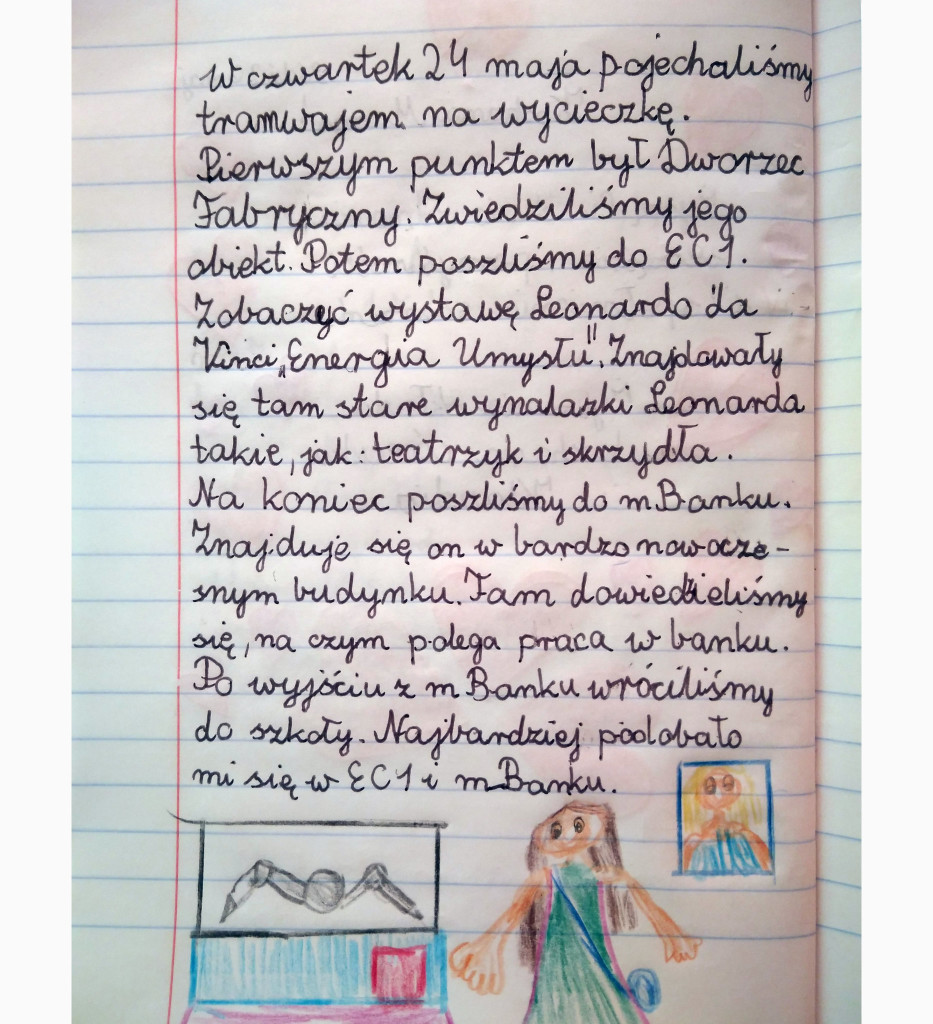 W czwartek 24 maja pojechaliśmy
tramwajem na wycieczkę.
Pierwszym punktem był Dworzec
Fabryczny. Zwiedziliśmy jego
obiekt. Potem poszliśmy do EC1.
Zobaczyć wystawę Leonardo Da
Vinci „Energia Umysłu". Znajdowały
się tam stare wynalazki Leonarda
takie, jak: teatrzyk i skrzydła.
Na koniec poszliśmy do mBanku.
Znajduje się on w bardzo nowocze-
snym budynku. Tam dowiedzieliśmy
się, na czym polega praca w banku.
Po wyjściu z mBanku wróciliśmy
do szkoły. Najbardziej podobało
mi się w EC1 i mBanku.